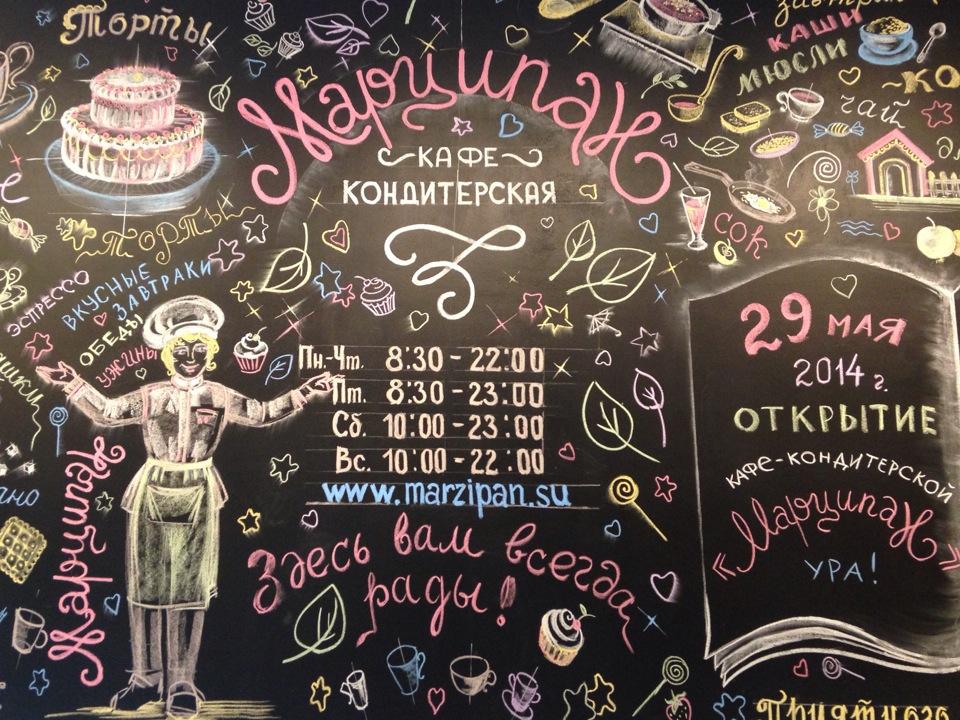 Торты
Марципан
КАФЕ
КОНДИТЕРСКАЯ
КАШИ
МЮСЛИ
чай
СОК
ТОРТЫ
ЭСПРЕССО
ВКУСНЫЕ
ЗАВТРАКИ
ОБЕДЫ
УЖИНЫ
Пн.-Чт. 8:30 - 22:00
Пт. 8:30 - 23:00
Сб. 10:00 - 23:00
Вс. 10:00 - 22:00
www.marzipan.su
Здесь вам всегда
рады!
Марципан
29 МАЯ
2014 г.
ОТКРЫТИЕ
КАФЕ-КОНДИТЕРСКОЙ
«Марципан»
УРА!